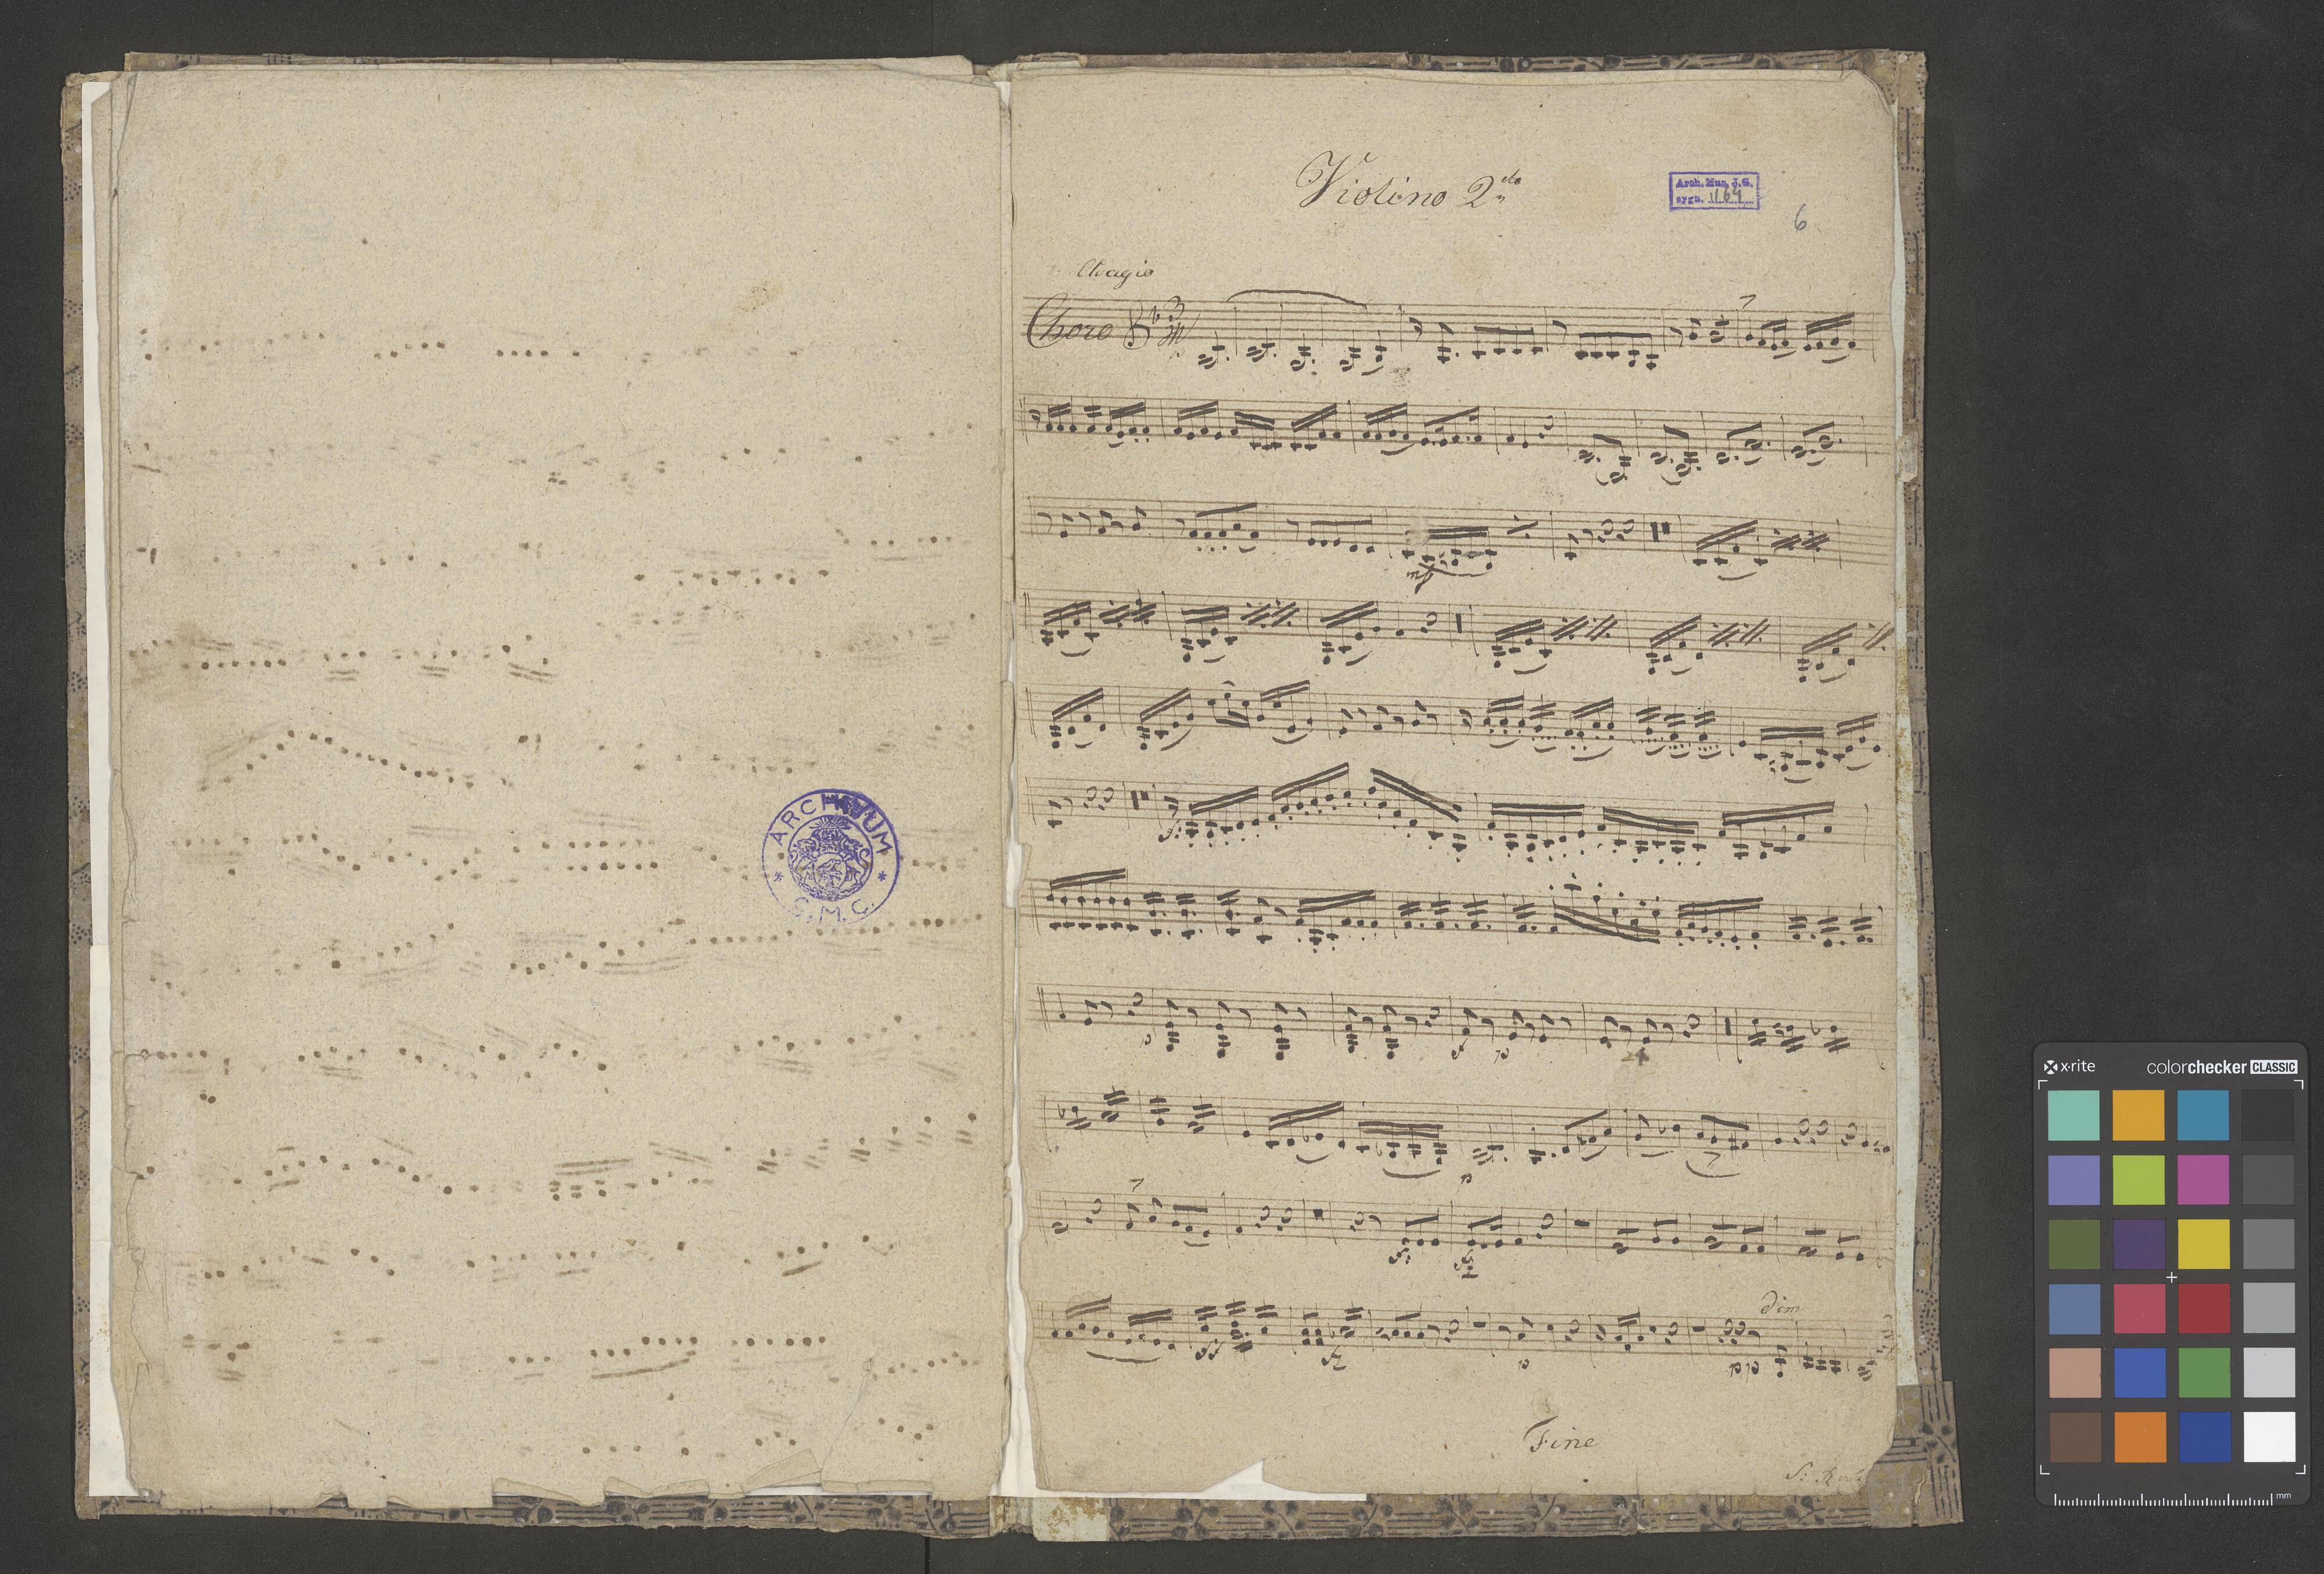 Violino 2do
Arch. Mus. J.G.
sygn. 1164
6
Adagio
Choro
p
mf
f:
p
f
p
p
f:
ff
p
dim
pp
Fine
ARCHIVUM
C.M.C.
x·rite
colorchecker CLASSIC
mm